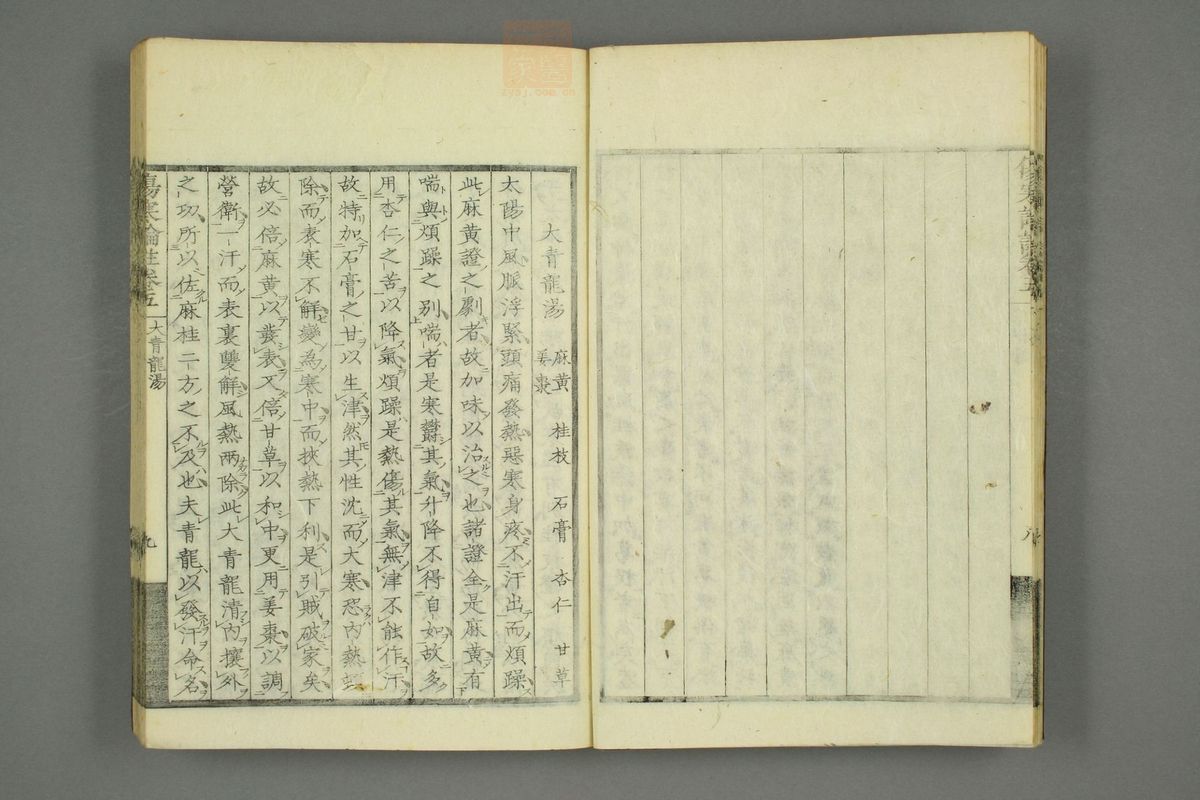 大青龍湯 麻黄 桂枝 石膏 杏仁 甘草
姜棗
太陽中風脈浮緊頭痛發熱惡寒身疼不汗出而煩躁
此麻黄證之劇者故加味以治之也諸證全是麻黄有
喘與煩躁之別喘者是寒鬱其氣升降不得自如故多
用杏仁之苦以降氣煩躁是熱傷其氣無津不能作汗
故特加石膏之甘以生津然其性沈而大寒恐内熱
除而表寒不解變為寒中而挾熱下利是引賊破家矣
故必倍麻黄以發表又倍甘草以和中更用姜棗以調
營衛一汗而表裏雙解風熱兩除此大青龍清内攘外
之功所以佐麻桂二方之不及也夫青龍以發汗命名
傷寒論註卷五 大青龍湯 九
八
醫
家
zysj.com.cn